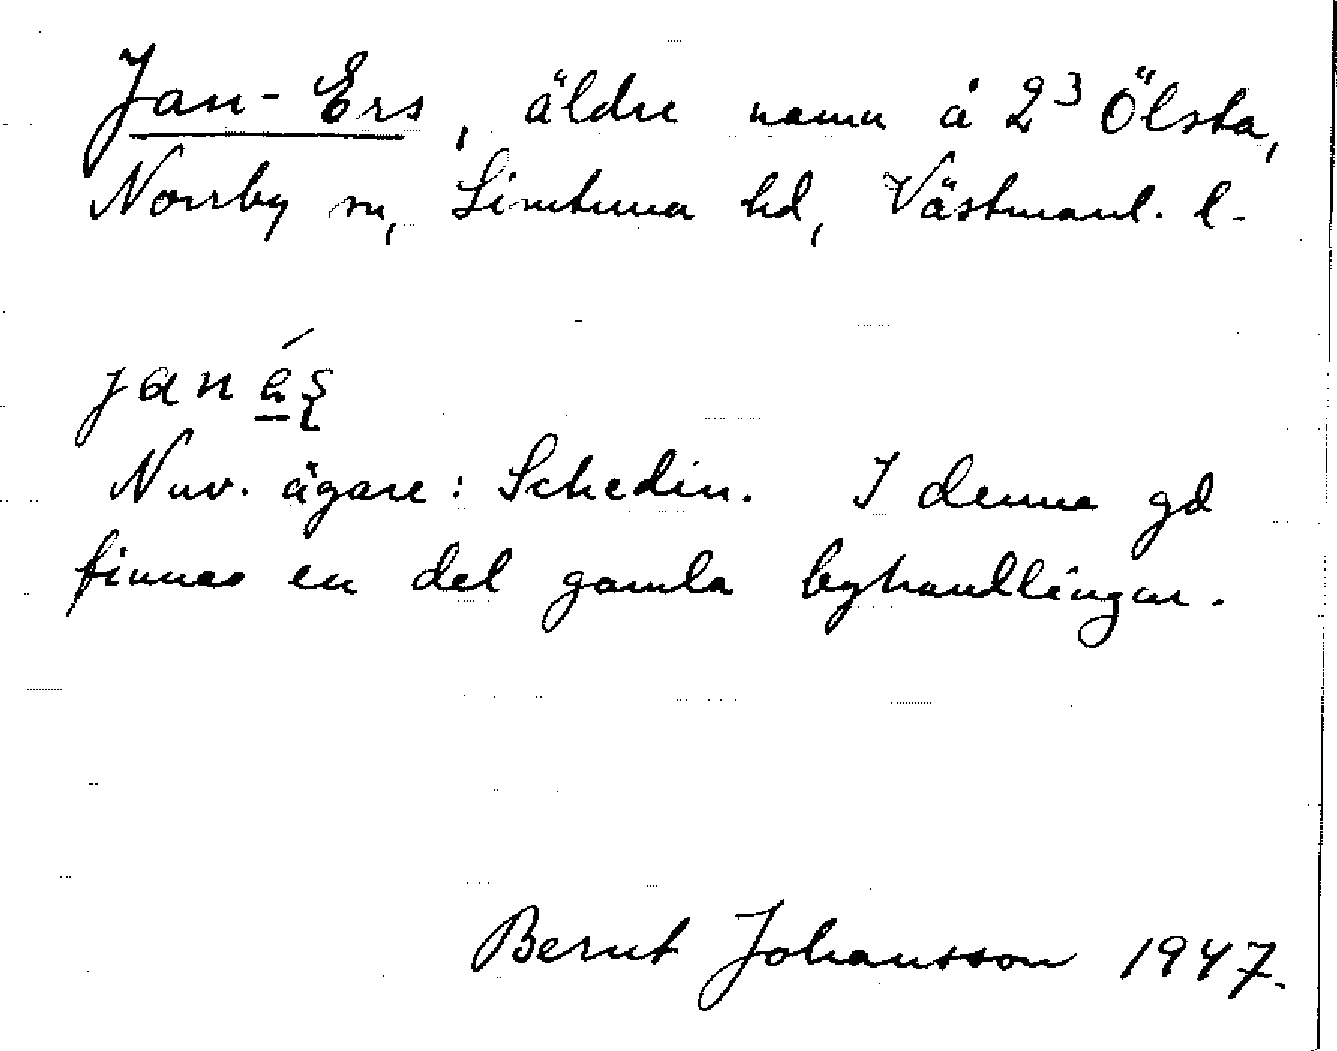 Jan-Ers, äldre namn å 2³ Ölsta,
Norrby sn, Simtuna hd, Västmanl. l.
Nuv. ägare: Schedin. I denna gd
finnes en del gamla byhandlingar.
Bernt Johansson 1947.